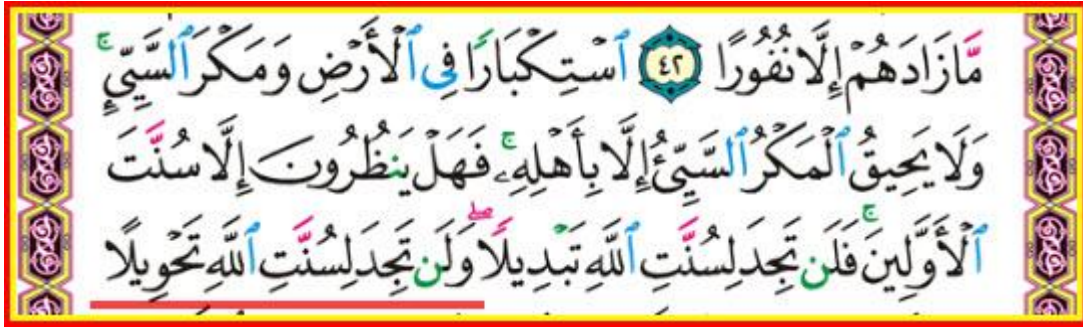 مَّا زَادَهُمْ إِلَّا نُفُورًا ٤٢ ٱسْتِكْبَارًا فِى ٱلْأَرْضِ وَمَكْرَ ٱلسَّيِّئِ ۚ
وَلَا يَحِيقُ ٱلْمَكْرُ ٱلسَّيِّئُ إِلَّا بِأَهْلِهِۦ ۚ فَهَلْ يَنظُرُونَ إِلَّا سُنَّتَ
ٱلْأَوَّلِينَ ۚ فَلَن تَجِدَ لِسُنَّتِ ٱللَّهِ تَبْدِيلًا ۖ وَلَن تَجِدَ لِسُنَّتِ ٱللَّهِ تَحْوِيلًا